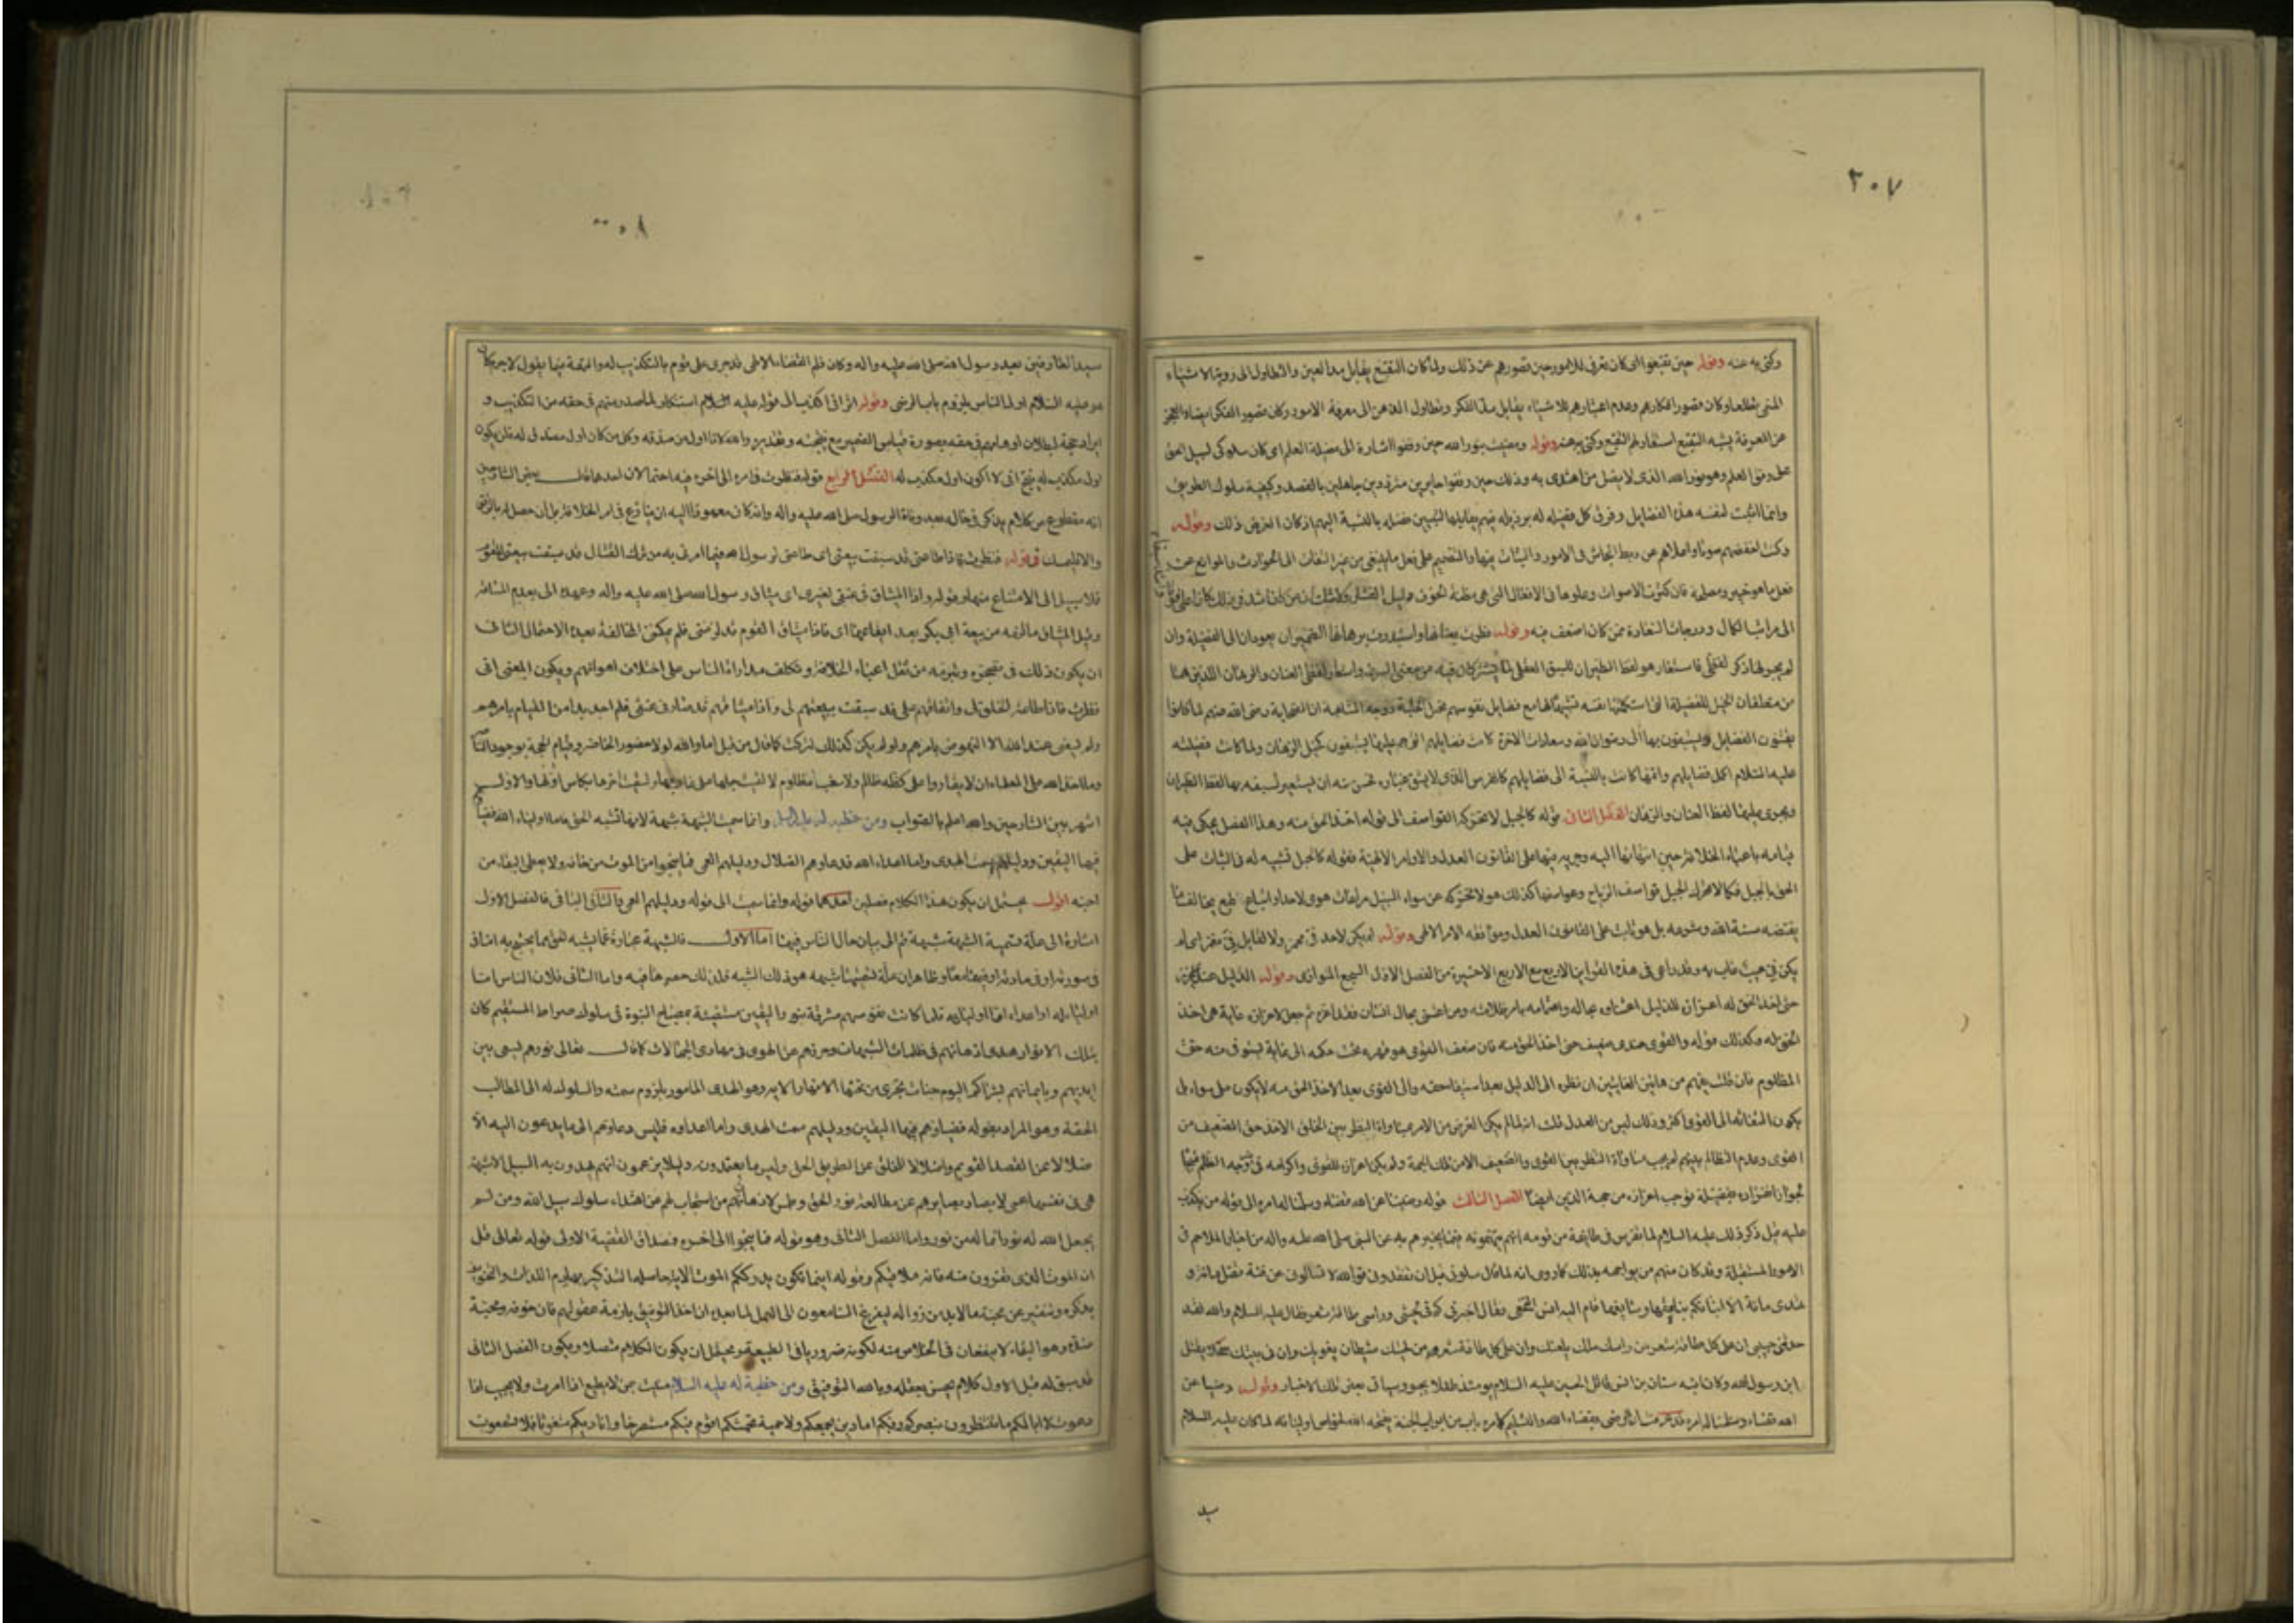 ٢٠٧
وكنى به عنه وقوله حين تقبعوا اى كان تعرفى للامور حين قصورهم عن ذلك ولما كان التقبع يقابل مد العين والتطاول الى روية الاشياء
المنى تطلعا وكان قصور افكارهم وعدم اعتبارهم للاشياء يقابل مد الفكر وتطاول الذهن الى معرفة الامور وكان قصور الفكر ايضا والعجز
عن المعرفة يشبه التقبع استعار له التقبع وكنى به عنه وقوله ومضيت بنور الله حين وقفوا اشارة الى فضيلة العلم اى كان سلوكى لسبيل الحق
على وفق العلم وهو نور الله الذى لا يضل من اهتدى به وذلك حين وقفوا حايرين مترددين جاهلين بالقصد وكيفية سلوك الطريق
وانما اثبت لنفسه هذه الفضايل وقرن كل فضيلة له برذيلة فيهم يقابلها لتبيين فضله بالنسبة اليهم اذ كان الغرض ذلك وقوله
وكنت اخفضهم صوتا واعلاهم عن ربط الجاش فى الامور والثبات فيها والتصميم على فعل ما ينبغى من غير التفات الى الحوادث والموانع عن
فعل ما هو خير ومصلحة فان كثرة الاصوات وعلوها فى الافعال التى هى مظنة الخوف دليل الفشل ولا شك ان من كان اشد فى ذلك كان اعلى فوتا
الى مراتب الكمال ودرجات السعادة ممن كان اضعف فيه وقوله فطرت بعنانها واستبددت برهانها الضميران يعودان الى الفضيلة وان
لم يجر لها ذكر لفظى فاستعار هو لفظ الطيران للسبق العقلى لما يشتركان فيه من معنى السرعة واستعار لفظى العنان والرهان اللذين هما
من متعلقات الخيل للفضيلة التى استكملتها نفسه تشبيها لها مع فضايل نفوسهم بخيل الحلبة ووجه المشابهة ان الصحابة رضى الله عنهم لما كانوا
يقتنون الفضايل ويستبقون بها الى رضوان الله وسعادات الاخرة كانت فضايلهم التى عليها يستبقون كخيل الرهان ولما كانت فضيلته
عليه السلام اكمل فضايلهم واتمها كانت بالنسبة الى فضايلهم كالفرس الذى لا يشق غباره فحسن منه ان يستعير لسبقه بها لفظ الطيران
ويجرى عليها لفظ العنان والرهان الفصل الثانى قوله كالجبل لا تحركه القواصف الى قوله اخذ الحق منه وهذا الفصل يحكى فيه
قيامه باعباء الخلافة حين انتهائها اليه وجريه فيها على القانون العدل والاوامر الالهية فقوله كالجبل تشبيه له فى الثبات على
الحق بالجبل فكما لا تحرك الجبل قواصف الرياح وعواصفها كذلك هو لا تحركه عن سواء السبيل مراعات هوى لاحد او اتباع طبع يخالف ما
يقتضيه سنة الله وشرعه بل هو ثابت على القانون العدل وموافقة الامر الالهى وقوله لم يكن لاحد فى مهمز ولا لقايل فى مغمز اى لم
يكن فى عيب يعاب به وقد راعى فى هذه القراين الاربع مع الاربع الاخيرة من الفصل الاول السجع المتوازى وقوله الذليل عندى عزيز
حتى اخذ الحق له اعزازه للذليل اعتناوه بحاله واهتمامه بامر ظلامته ومن اعتنى بحال انسان فقد اعزه ثم جعل لاعزازه غاية هى اخذ
الحق له وكذلك قوله والقوى عندى ضعيف حتى اخذ الحق منه فان ضعف القوى هو قهره تحت حكمه الى غاية يستوفى منه حق
المظلوم فان قلت يفهم من هاتين الغايتين ان نظره الى الذليل بعد استيفاء حقه والى القوى بعد الاخذ الحق منه لا يكون على سواء بل
يكون التفاته الى القوى اكثر وذلك ليس من العدل قلت انه لما لم يكن الغرض من الامر بمساواة النظر بين الخلق الا اخذ حق الضعيف من
القوى وعدم التظالم بينهم لم يجب مساواة النظر بين القوى والضعيف الا من تلك الجهة ولم يكن اعزاز القوى واكرامه فى غير وجه الظلم قبيحا
لجواز انفراده بفضيلة يوجب اعزازه من جهة الدين ايضا الفصل الثالث قوله رضينا عن الله قضاه وسلمنا لله امره الى قوله من كذب
عليه قيل ذكر ذلك عليه السلام لما تفرس فى طايفة من قومه انهم يتهمونه فيما يخبرهم به عن النبى صلى الله عليه واله من اخبار الملاحم فى
الامور المستقبلة وقد كان منهم من يواجهه بذلك كما روى انه لما قال سلونى قبل ان تفقدونى فوالله لا تسالونى عن فئة تضل مائة و
تهدى مائة الا انباتكم بناعقها وسايقها قام اليه انس النخعى فقال اخبرنى كم فى لحيتى وراسى طاقة شعر فقال عليه السلام والله لقد
حدثنى حبيبى ان على كل طاقة شعر من راسك ملك يلعنك وان على كل طاقة شعر من لحيتك شيطان يغويك وان فى بيتك سخلا يقتل
ابن رسول الله وكان ابنه سنان بن انس قاتل الحسين عليه السلام يومئذ طفلا يحبو وسياتى بعض تلك الاخبار وقوله رضينا عن
الله قضاه وسلمنا له امره قد عرفت ان الرضى بقضاء الله والتسليم لامره باب من ابواب الجنة يفتحه الله لخواص اوليائه لما كان عليه السلام
سيد
٢٠٨
سيد العارفين بعد رسول الله صلى الله عليه واله وكان قلم القضاء الالهى قد جرى على قوم بالتكذيب له والتهمة فيما يقول لا جرم كان
هو عليه السلام اولى الناس بلزوم باب الرضى وقوله اترانى اكذب الى قوله عليه السلام استنكار لما صدر منهم فى حقه من التكذيب و
ايراد حجة لبطلان اوهامهم فى حقه بصورة قياس الضمير مع نتيجته وتقديره والله لانا اول من صدقه وكل من كان اول مصدق له فلن يكون
اول مكذب له ينتج انى لا اكون اول مكذب له الفصل الرابع قوله فنظرت فى امرى الى اخره فيه احتمالان احدهما قال بعض الشارحين
انه مقطوع من كلام يذكر فى حاله بعد وفاة الرسول صلى الله عليه واله وانه كان معهودا اليه ان لا ينازع فى امر الخلافة بل ان حصل له بالرفق
والا فليمسك فقوله فنظرت فاذا طاعتى قد سبقت بيعتى اى طاعتى لرسول الله فيما امرنى به من ترك القتال قد سبقت بيعتى للقوم
فلا سبيل الى الامتناع منها وقوله واذا الميثاق فى عنقى لغيرى اى ميثاق رسول الله صلى الله عليه واله وعهده الى بعدم المشاقة
وقيل الميثاق ما لزمه من بيعة ابى بكر بعد ايقاعها اى فاذا ميثاق القوم قد لزمنى فلم يمكن المخالفة بعده الاحتمال الثانى
ان يكون ذلك فى تضجره وتبرمه من ثقل اعباء الخلافة وتكلف مداراة الناس على اختلاف اهوائهم ويكون المعنى انى
نظرت فاذا طاعة الخلق لى واتفاقهم على قد سبقت بيعتهم لى واذا ميثاقهم قد صار فى عنقى فلم اجد بدا من القيام بامرهم
ولم يسعنى عند الله الا النهوض بامرهم ولو لم يكن كذلك لتركت كما قال من قبل اما والله لولا حضور الحاضر وقيام الحجة بوجود الناصر
وما اخذ الله على العلماء ان لا يقاروا على كظة ظالم ولا سغب مظلوم لالقيت حبلها على غاربها ولسقيت اخرها بكاس اولها والاول
اشهر بين الشارحين والله اعلم بالصواب ومن خطبة له عليه السلم وانما سميت الشبهة شبهة لانها تشبه الحق فاما اولياء الله فضياوهم
فيها اليقين ودليلهم سمت الهدى واما اعداء الله فدعاوهم الضلال ودليلهم العمى فما ينجوا من الموت من خافه ولا يعطى البقاء من
احبه اقول يحتمل ان يكون هذا الكلام فصلين احدهما قوله وانما سميت الى قوله ودليلهم العمى والثانى الباقى فالفصل الاول
اشارة الى علة تسمية الشبهة شبهة ثم الى بيان حال الناس فيها اما الاول فالشبهة عبارة عما يشبه الحق مما يحتج به اما فى
فى صورته او فى مادته او فيهما معا وظاهر ان علة تسميتها شبهة هو ذلك الشبه فلذلك حصرها فيه واما الثانى فلان الناس اما
اولياء الله او اعداء اما اولياوه فلما كانت نفوسهم مشرقة بنور اليقين مستضيئة بمصباح النبوة فى سلوك صراط المستقيم كان
بتلك الانوار هدى اذهانهم فى ظلمات الشبهات وحرزهم عن الهوى فى مهاوى الجهالات كما قال تعالى نورهم يسعى بين
ايديهم وبايمانهم بشراكم اليوم جنات تجرى من تحتها الانهار الاية وهو الهدى المامور بلزوم سمته والسلوك له الى المطالب
الحقة وهو المراد بقوله فضياوهم فيها اليقين ودليلهم سمت الهدى واما اعداوه فليس دعاوهم الى ما يدعون اليه الا
ضلالا عن القصد القويم واضلالا للخلق عن الطريق الحق وليس ما يعتمدونه دليلا يزعمون انهم يهدون به السبيل الا شبهة
هى فى نفسها عمى لابصار بصايرهم عن مطالعة نور الحق وطمس لاذهانهم من استجاب لهم عن اهتداء سلوك سبيل الله ومن لم
يجعل الله له نورا فما له من نور واما الفصل الثانى وهو قوله فما ينجوا الى اخره فصدق القضية الاولى قوله تعالى قل
ان الموت الذى تفرون منه فانه ملاقيكم وقوله اينما تكونوا يدرككم الموت الاية حاصلها التذكير بهادم اللذات والتخويف
بذكره وتنفير عن محبة ما لابد من زواله ليفزع السامعون الى العمل لما بعده ان اخذ التوفيق بازمة عقولهم فان خوفه ومحبة
ضده وهو البقاء لا ينفعان فى الخلاص منه لكونه ضروريا فى الطبيعة ويحتمل ان يكون الكلام متصلا ويكون الفصل الثانى
قد سبق له قبل الاول كلام يحسن تعلقه وبالله التوفيق ومن خطبة له عليه السلام منيت بمن لا يطيع اذا امرت ولا يجيب اذا
دعوت لا ابا لكم ما تنتظرون بنصركم ربكم اما دين يجمعكم ولا حمية تحمشكم اقوم فيكم مستصرخا واناديكم متغوثا فلا تسمعون